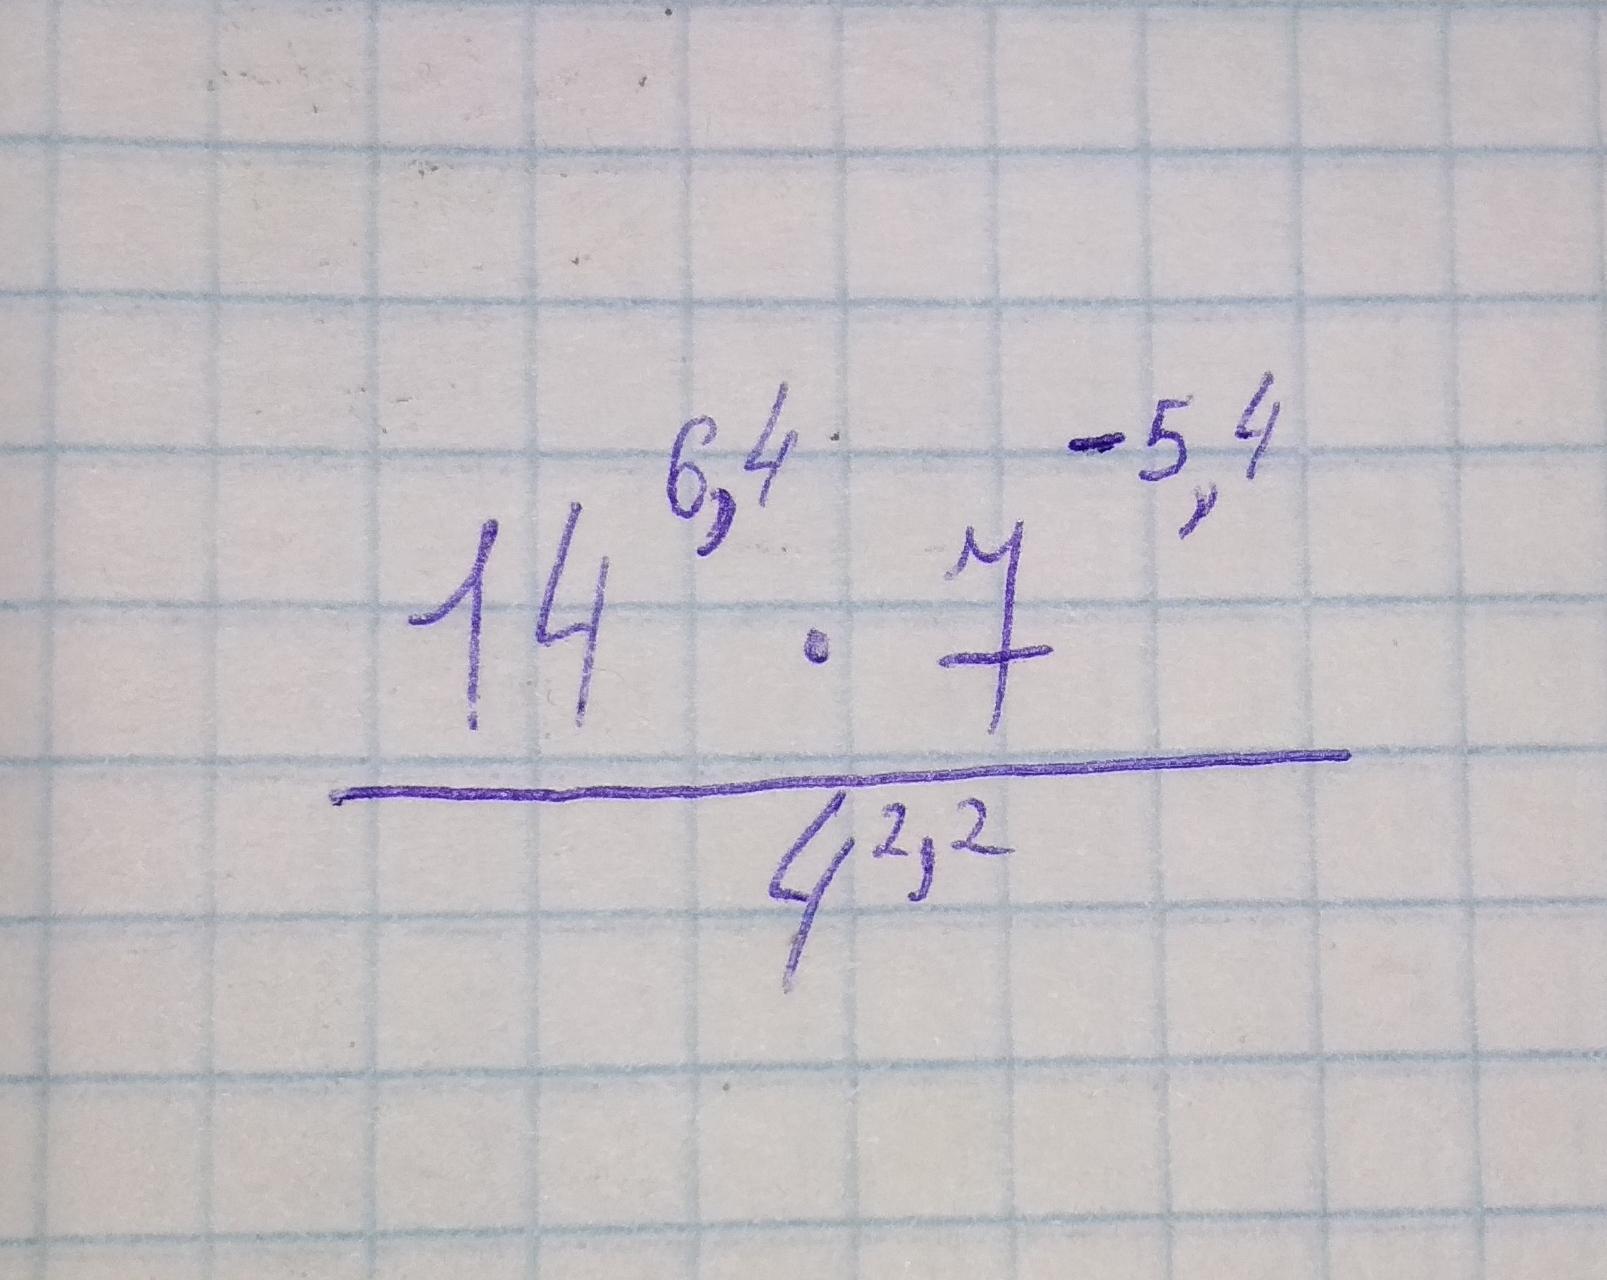 14^{6,4} · 7^{-5,4}
4^{2,2}